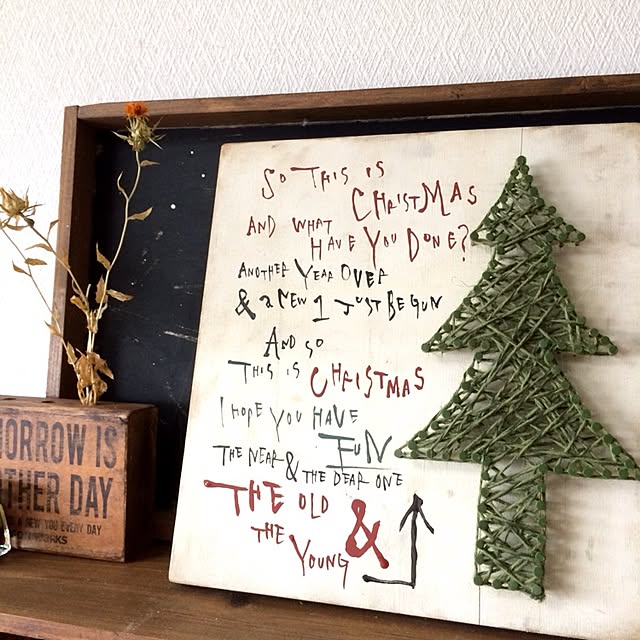 So This is
CHRISTMAS
AND WHAT
HAVE YOU DONE?
ANOTHER YEAR OVER
& a NEW 1 JUST BEGUN
AND SO
THIS IS CHRISTMAS
I HOPE YOU HAVE
FUN
THE NEAR & THE DEAR ONE
THE OLD
& THE
YOUNG
MORROW IS
THER DAY
A NEW YOU EVERY DAY
WORKS